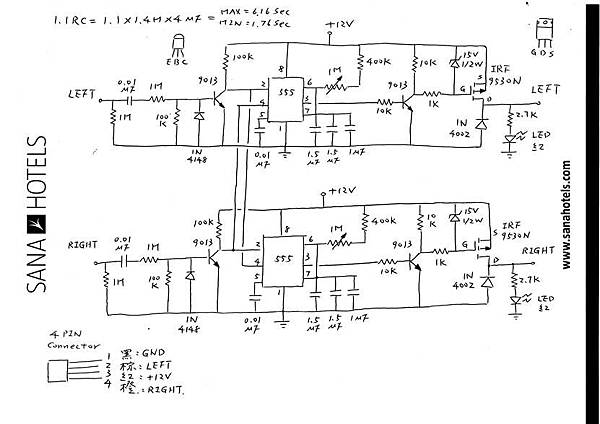 1.1RC = 1.1 x 1.4M x 4 MF =
MAX = 6.16 Sec
MIN = 1.76 Sec
+12V
E B C
G D S
100k
8
400K
10K
15V
1/2W
IRF
9530N
S
G
D
1M
0.01
MF
1M
9013
2
4
5
555
6
3
7
1
9013
1K
10K
LEFT
LEFT
1M
100
K
1N
4148
0.01
MF
1.5
MF
1.5
MF
1MF
1N
4002
2.7K
LED
+12V
100k
8
1M
400K
10
K
15V
1/2W
IRF
9530N
S
G
D
RIGHT
0.01
MF
1M
9013
2
4
5
555
6
3
7
1
9013
1K
10K
RIGHT
1M
100
K
1N
4148
0.01
MF
1.5
MF
1.5
MF
1MF
1N
4002
2.7K
LED
4 PIN
Connector
1 黑: GND
2 棕: LEFT
3 红: +12V
4 橙: RIGHT.
SANA HOTELS
www.sanahotels.com